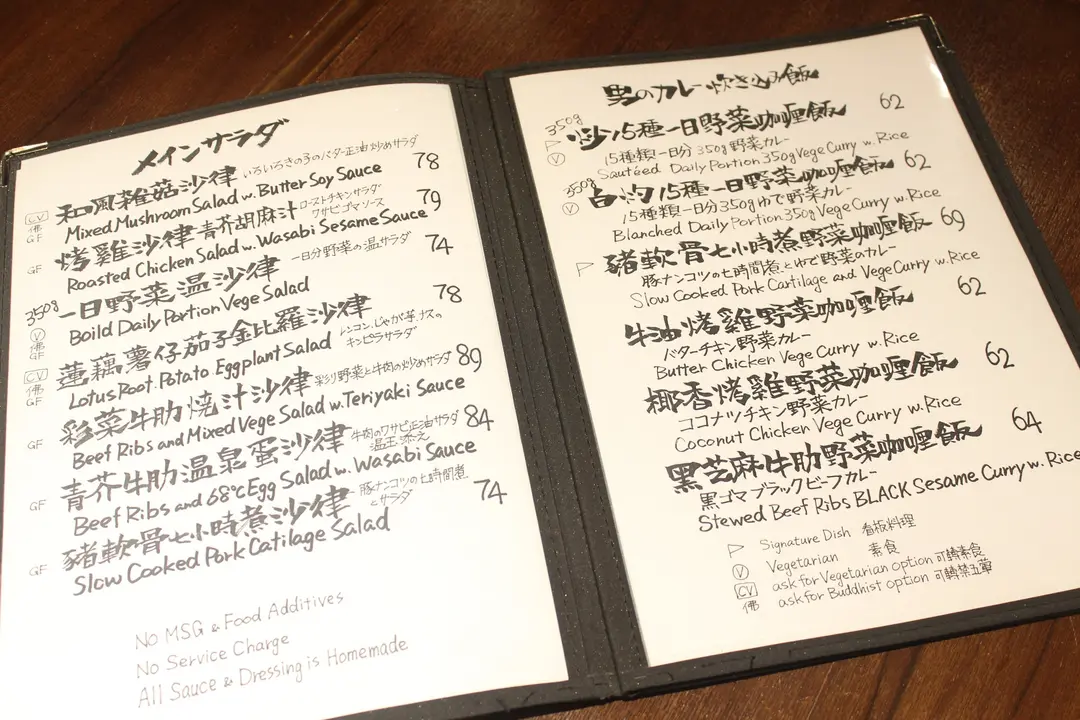 メインサラダ
和風雑菇沙律 いろいろきの子のバター正油炒めサラダ 78
CV 佛 GF
Mixed Mushroom Salad w. Butter Soy Sauce
烤雞沙律 青芥胡麻汁 ローストチキンサラダ ワサビゴマソース 79
GF
Roasted Chicken Salad w. Wasabi Sesame Sauce
350g 一日野菜温沙律 一日分野菜の温サラダ 74
V 佛 GF
Boild Daily Portion Vege Salad
蓮藕薯仔茄子金比羅沙律 レンコン、じゃが芋、ナスのキンピラサラダ 78
CV 佛 GF
Lotus Root. Potato. Eggplant Salad
彩菜牛肋焼汁沙律 彩り野菜と牛肉の炒めサラダ 89
GF
Beef Ribs and Mixed Vege Salad w. Teriyaki Sauce
青芥牛肋温泉蛋沙律 牛肉のワサビ正油サラダ 温玉添え 84
GF
Beef Ribs and 68℃ Egg Salad w. Wasabi Sauce
豬軟骨七小時煮沙律 豚ナンコツの七時間煮とサラダ 74
GF
Slow Cooked Pork Catilage Salad
No MSG & Food Additives
No Service Charge
All Sauce & Dressing is Homemade
男のカレー炊き込み飯
350g 炒15種一日野菜咖喱飯 62
V
15種類一日分350g野菜カレー
Sautéed Daily Portion 350g Vege Curry w. Rice
350g 白灼15種一日野菜咖喱飯 62
V
15種類一日分350gゆで野菜カレー
Blanched Daily Portion 350g Vege Curry w. Rice
豬軟骨七小時煮野菜咖喱飯 69
豚ナンコツの七時間煮とゆで野菜のカレー
Slow Cooked Pork Cartilage and Vege Curry w. Rice
牛油烤雞野菜咖喱飯 62
バターチキン野菜カレー
Butter Chicken Vege Curry w. Rice
椰香烤雞野菜咖喱飯 62
ココナツチキン野菜カレー
Coconut Chicken Vege Curry w. Rice
黑芝麻牛肋野菜咖喱飯 64
黒ゴマブラックビーフカレー
Stewed Beef Ribs BLACK Sesame Curry w. Rice
Signature Dish 看板料理
V Vegetarian 素食
CV ask for Vegetarian option 可轉素食
佛 ask for Buddhist option 可轉禁五葷